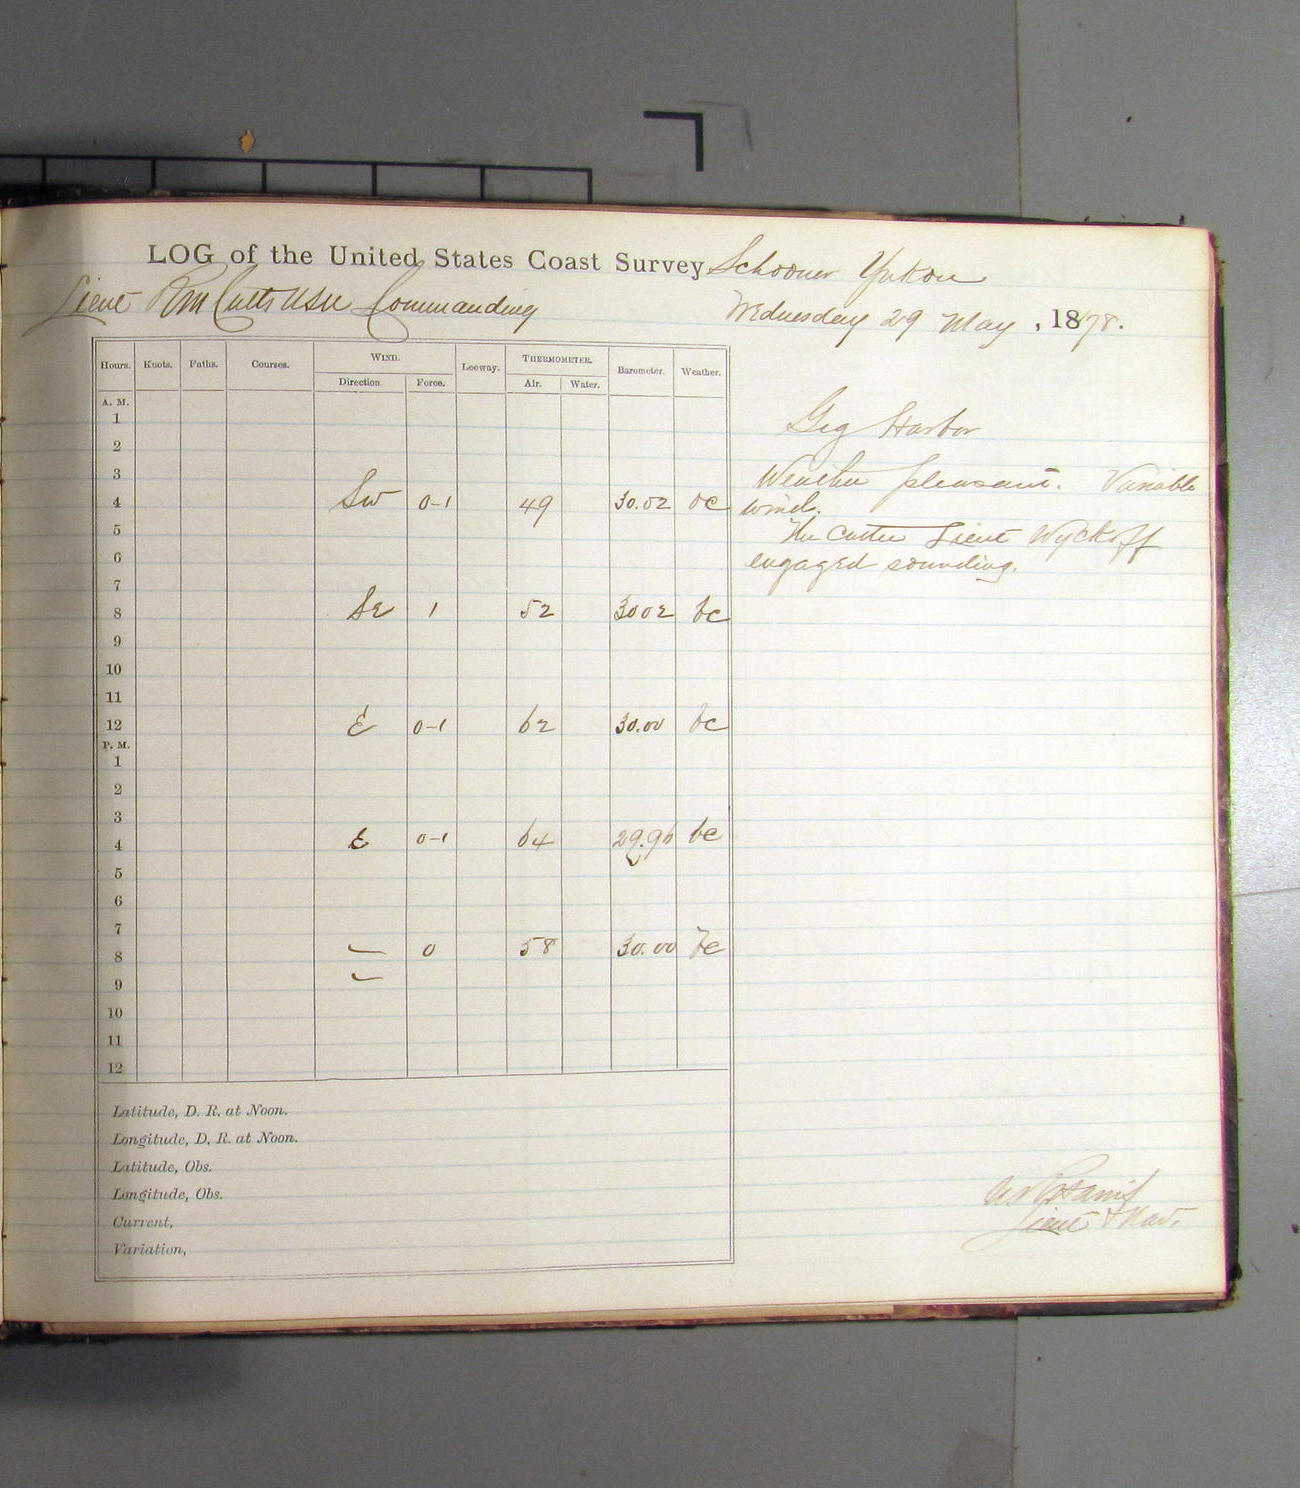 LOG of the United States Coast Survey Schooner Yukon
Lieut R M Cutts USN Commanding
Wednesday 29 May, 1878.
Hours. Knots. Faths. Courses. WIND. Leeway. THERMOMETER. Barometer. Weather.
Direction. Force. Air. Water.
A. M.
1
2
3
4 SW 0-1 49 30.02 oc
5
6
7
8 SE 1 52 30 02 bc
9
10
11
12 E 0-1 62 30.00 bc
P. M.
1
2
3
4 E 0-1 64 29.96 bc
5
6
7
8 — 0 58 30.00 bc
9 —
10
11
12
Latitude, D. R. at Noon.
Longitude, D. R. at Noon.
Latitude, Obs.
Longitude, Obs.
Current,
Variation,
Gig Harbor
Weather pleasant. Variable
winds.
The Cutter Lieut Wyckoff
engaged sounding.
Lieut & Nav.